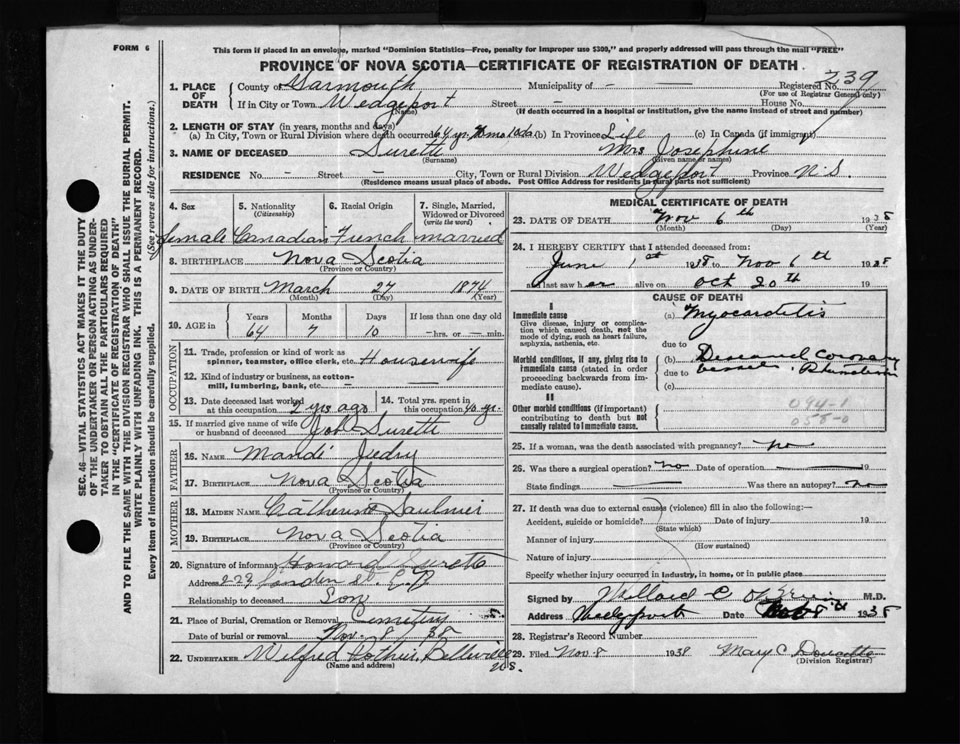 FORM 6
This form if placed in an envelope, marked "Dominion Statistics—Free, penalty for improper use $300," and properly addressed will pass through the mail "FREE"
PROVINCE OF NOVA SCOTIA—CERTIFICATE OF REGISTRATION OF DEATH
1. PLACE OF DEATH County of Yarmouth Municipality of - - Registered No. 239
(For use of Registrar General only)
If in City or Town Wedgeport Street - House No.
(Name) (If death occurred in a hospital or institution, give the name instead of street and number)
2. LENGTH OF STAY (in years, months and days)
(a) In City, Town or Rural Division where death occurred 64 yrs, 7 mo 10 da. (b) In Province Life (c) In Canada (if immigrant)
3. NAME OF DECEASED Surette Mrs Josephine
(Surname) (Given name or names)
RESIDENCE No. - - City, Town or Rural Division Wedgeport Province N.S.
(Residence means usual place of abode. Post Office Address for residents in rural parts not sufficient)
4. Sex 5. Nationality (Citizenship) 6. Racial Origin 7. Single, Married, Widowed or Divorced (write the word)
female Canadian French married
8. BIRTHPLACE Nova Scotia
(Province or Country)
9. DATE OF BIRTH March 27 1874
(Month) (Day) (Year)
10. AGE in Years Months Days If less than one day old
64 7 10 -hrs. or -min.
OCCUPATION
11. Trade, profession or kind of work as spinner, teamster, office clerk, etc. Housewife
12. Kind of industry or business, as cotton-mill, lumbering, bank, etc. - -
13. Date deceased last worked at this occupation 2 yrs ago 14. Total yrs. spent in this occupation 40 yrs.
15. If married give name of wife or husband of deceased Surette
FATHER
16. NAME Mandé Jedry
17. BIRTHPLACE Nova Scotia
(Province or Country)
MOTHER
18. MAIDEN NAME Catherine Saulnier
19. BIRTHPLACE Nova Scotia
(Province or Country)
20. Signature of informant Howard Surette
Address 229
Relationship to deceased Son
21. Place of Burial, Cremation or Removal Cemetery
Date of burial or removal Nov. 8 / 38
22. UNDERTAKER Wilfred Pothier, Belleville
(Name and address) N.S.
MEDICAL CERTIFICATE OF DEATH
23. DATE OF DEATH Nov 6th 1938
(Month) (Day) (Year)
24. I HEREBY CERTIFY that I attended deceased from:
June 1st 1938 to Nov 6th 1938
and last saw her alive on Oct 20th 19
CAUSE OF DEATH
I
Immediate cause (a) Myocarditis
Give disease, injury or complication which caused death, not the mode of dying, such as heart failure, asphyxia, asthenia, etc.
due to
Morbid conditions, if any, giving rise to immediate cause (stated in order proceeding backwards from immediate cause). (b) Diseased Coronary
due to vessels.
(c)
II
Other morbid conditions (if important) contributing to death but not causally related to immediate cause.
094-1
058-0
25. If a woman, was the death associated with pregnancy? no
26. Was there a surgical operation? no Date of operation 19
State findings Was there an autopsy? no
27. If death was due to external causes (violence) fill in also the following:—
Accident, suicide or homicide? Date of injury 19
(State which)
Manner of injury
(How sustained)
Nature of injury
Specify whether injury occurred in industry, in home, or in public place
Signed by Willard C. M.D.
Address Wedgeport Date 8th 1938
28. Registrar's Record Number
29. Filed Nov 8 1938 Mary C Doucette
(Division Registrar)
SEC. 46—VITAL STATISTICS ACT MAKES IT THE DUTY
OF THE UNDERTAKER OR PERSON ACTING AS UNDER-
TAKER TO OBTAIN ALL THE PARTICULARS REQUIRED
IN THE "CERTIFICATE OF REGISTRATION OF DEATH"
AND TO FILE THE SAME WITH THE DIVISION REGISTRAR WHO SHALL ISSUE THE BURIAL PERMIT.
WRITE PLAINLY WITH UNFADING INK. THIS IS A PERMANENT RECORD.
Every item of information should be carefully supplied. (See reverse side for instructions.)